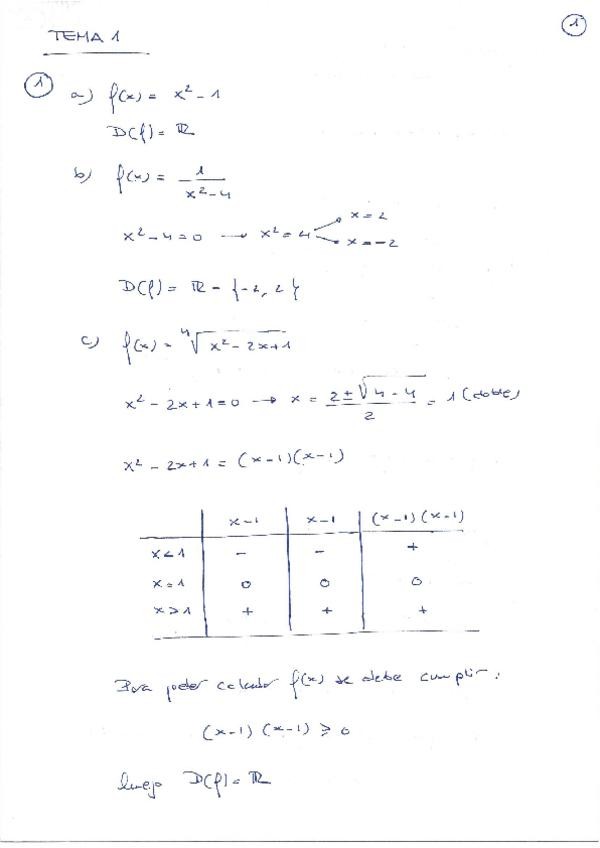 TEMA 1
1
1
a) f(x) = x² - 1
D(f) = ℝ
b) f(x) = 1/(x² - 4)
x² - 4 = 0 → x² = 4 → x = 2
→ x = -2
D(f) = ℝ - {-2, 2}
c) f(x) = ⁴√(x² - 2x + 1)
x² - 2x + 1 = 0 → x = (2 ± √(4 - 4))/2 = 1 (doble)
x² - 2x + 1 = (x - 1)(x - 1)
x - 1 x - 1 (x - 1)(x - 1)
x < 1 - - +
x = 1 0 0 0
x > 1 + + +
Para poder calcular f(x) se debe cumplir:
(x - 1)(x - 1) ≥ 0
luego D(f) = ℝ